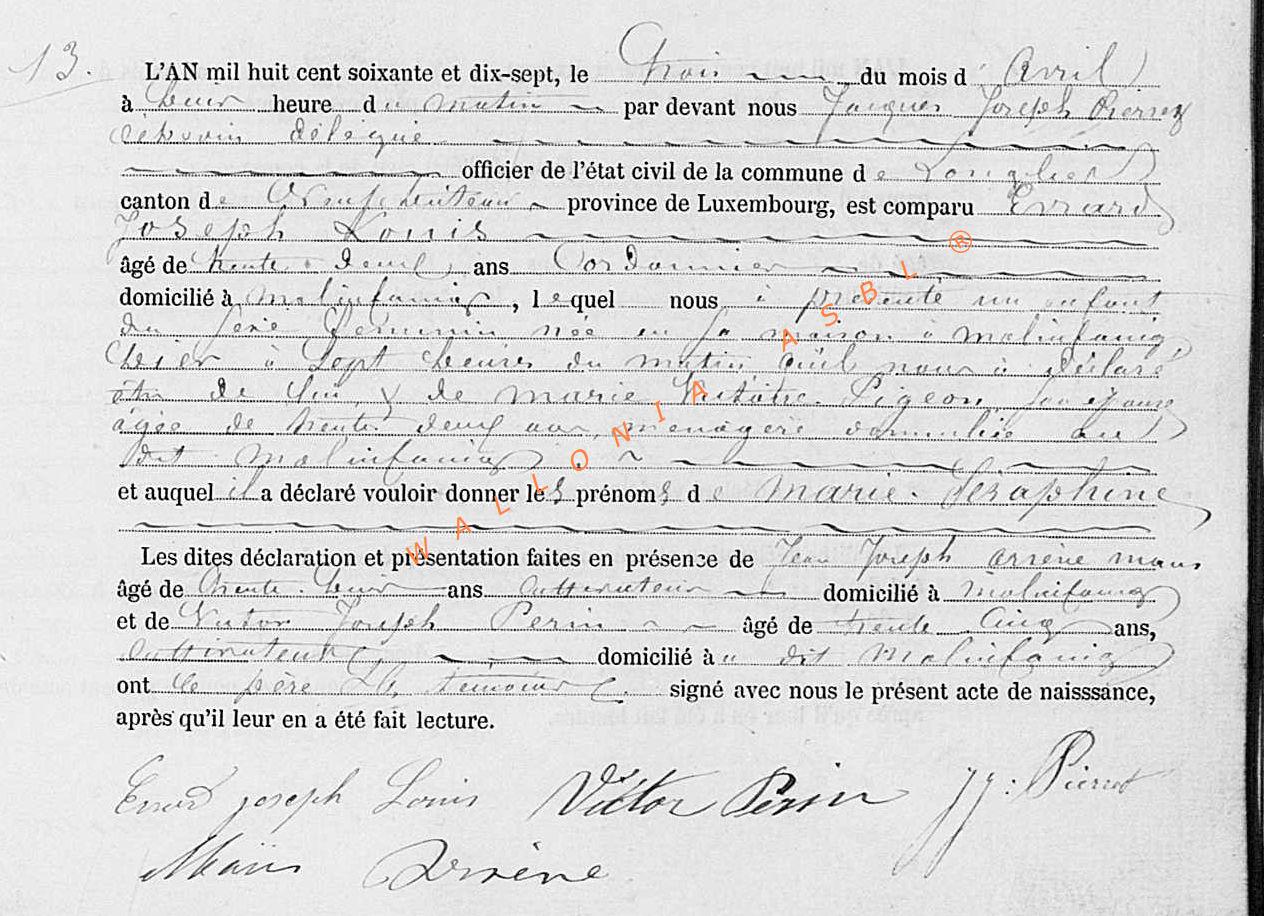 13.
L'AN mil huit cent soixante et dix-sept, le Trois du mois d' Avril
à huit heure du matin par devant nous Jacques Joseph Pierret
échevin délégué
officier de l'état civil de la commune de Longlier
canton de Neufchateau province de Luxembourg, est comparu Evrard
Joseph Louis
âgé de trente deux ans Cordonnier
domicilié à Molinfaing, lequel nous à présenté un enfant
du sexe féminin née en sa maison à Molinfaing,
hier à sept heures du matin, qu'il nous à déclaré
être de lui, & de marie Pigeon, son épouse
âgée de trente deux ans, ménagère domiciliée au
dit Molinfaing
et auquel il a déclaré vouloir donner les prénoms de Marie. Séraphine
Les dites déclaration et présentation faites en présence de Jean Joseph Arsène maus
âgé de trente huit ans cultivateur domicilié à Molinfaing
et de Victor Joseph Perin âgé de trente Cinq ans,
cultivateur domicilié à u dit Molinfaing
ont Le père & les témoins signé avec nous le présent acte de naisssance,
après qu'il leur en a été fait lecture.
Evrard joseph Louis Victor Perin JJ: Pierret
Maus Arsène
WALLONIA ASBL ®